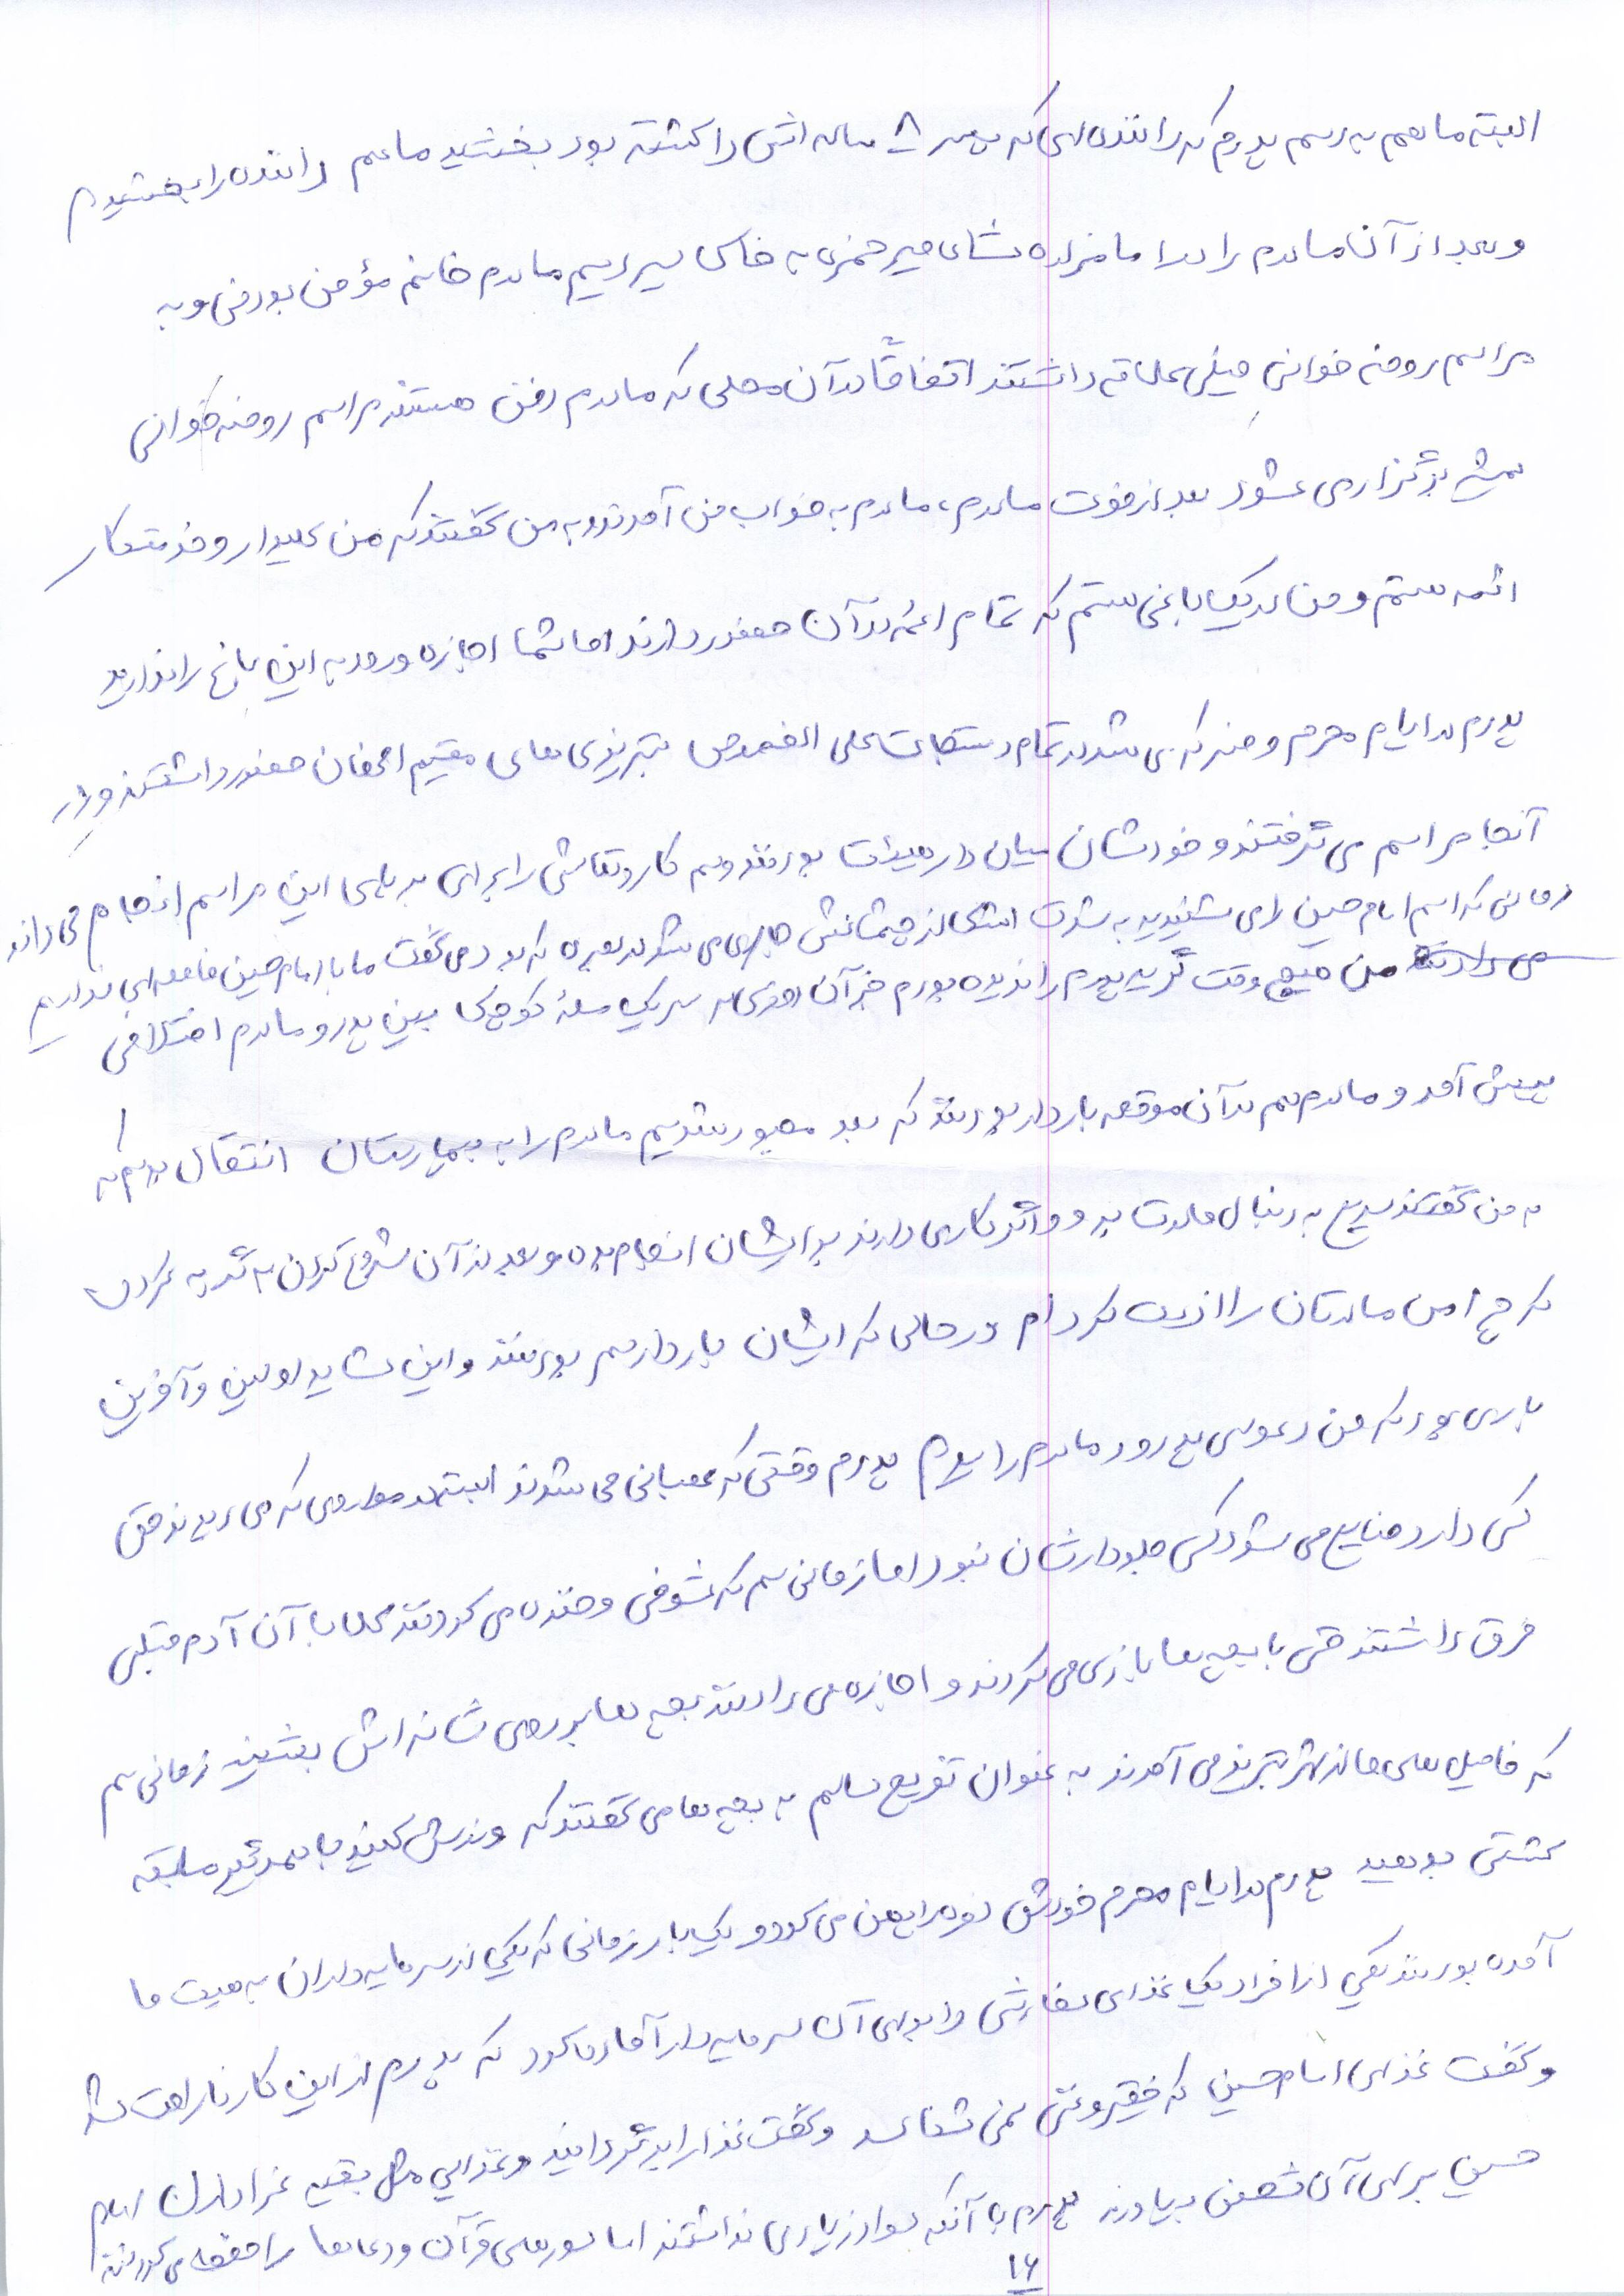 البته ما هم به رسم پدرم که راننده‌ای که پسر ۸ ساله اش را کشته بود بخشید ما هم راننده را بخشیدیم
و بعد از آن مادرم را در امامزاده شاه میر حمزه به خاک سپردیم مادرم خانم مؤمن بودنی و به
مراسم روضه خوانی خیلی علاقه داشتند اتفاقاً در آن محلی که مادرم دفن هستند مراسم روضه خوانی
همیشه برگزار می شود بعد از فوت مادرم، مادرم به خواب من آمدند و به من گفتند که من کلیددار و خدمتکار
ائمه هستم و من در یک باغی هستم که تمام ائمه در آن حضور دارند اما شما اجازه ورود به این باغ را ندارید
پدرم در ایام محرم و صفر که می شد در تمام دستجات علی الخصوص تبریزی های مقیم اصفهان حضور داشتند و در
آنجا مراسم می گرفتند و خودشان میان دار هیئت بودند و هم کار و تقاشی را برای بر پایی این مراسم انجام می دادند
زمانی که اسم امام حسین را می شنیدید به شدت اشک از چشمانش جاری می شد در بهره که بود می گفت ما با امام حسین فاصله ای نداریم
می دادند من هیچ وقت گریه پدرم را ندیده بودم جز آن روزی که سر یک مسئله کوچک بین پدر و مادرم اختلافی
پیش آمد و مادرم هم در آن موقعه باردار بودند که بعد مجبور شدیم مادرم را به بیمارستان انتقال بدیم که
به من گفتند سریع به دنبال مادرت برو و اگر کاری دارند برایشان انجام بده و بعد از آن شروع کردن به گریه کردن
که چرا من مادرتان را اذیت کردم در حالی که ایشان باردار هم بودند و این شاید اولین و آخرین
باری بود که من دعوای پدر و مادرم را دیدم پدرم وقتی که عصبانی می شدند البته در مواردی که می دیدند حق
کسی دارد ضایع می شود کسی جلودارشان نبود اما زمانی هم که شوخی و خنده می کردند کلا با آن آدم قبلی
فرق داشتند حتی با بچه ها بازی می کردند و اجازه می دادند بچه ها بر روی شانه اش بنشینند زمانی هم
که فامیل های ما از شهر تبریز می آمدند به عنوان تفریح سالم به بچه ها می گفتند که ورزش کنید با همدیگر مسابقه
کشتی بدهید پدرم در ایام محرم خودش نوحه سرایی می کرد و یک بار زمانی که یکی از سرمایه داران به هیئت ما
آمده بودند یکی از افراد یک غذای سفارشی را برای آن سرمایه دار آماده کرد که پدرم از این کار ناراحت شد
و گفت غذای امام حسین که فقیر و غنی نمی شناسد و گفت غذا را برگردانید و غذایی مثل بقیه عزاداران امام
حسین برای آن شخص بیاورند پدرم با آنکه سواد زیادی نداشتند اما سوره های قرآن و دعاها را حفظ می کردند
۱۶